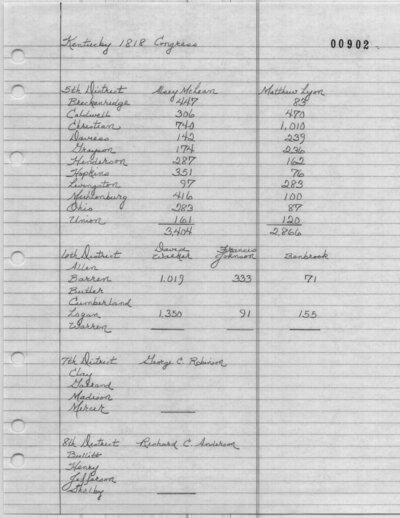 Kentucky 1818 Congress 00902
5th District Matthew Lyon
Breckenridge 447 83
Caldwell 306 470
Christian 740 1,010
Daviess 142 239
Grayson 174 236
Henderson 287 162
Hopkins 351 76
Livingston 97 283
Muhlenburg 416 100
Ohio 283 87
Union 161 120
3,404 2,866
6th District David Francis Johnson
Allen
Barren 1,019 333 71
Butler
Cumberland
Logan 1,350 91 155
Warren
7th District George C. Robinson
Clay
Garrard
Madison
Mercer
8th District Richard C. Anderson
Bullitt
Henry
Jefferson
Shelby